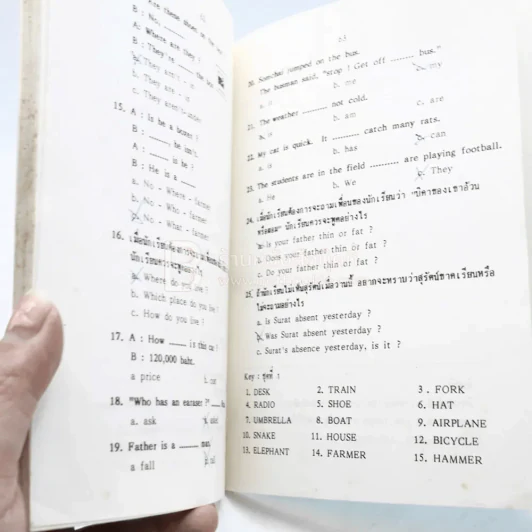 A: Where are they?
B: They're
a. They aren't - in
b. They are - in
c. They aren't-under
15. A : Is he a boxer ?
B : ____ he isn't.
A : ____ is he ?
B : He is a ____
a. No - Where - farmer
b. No - Who - farmer
c. No - What - farmer
16.
a. Where do you live ?
b. Which place do you live ?
c. How do you live ?
17. A : How ____ is this car ?
B : 120,000 baht.
a price
18. "Who has an eraser ?"
a. ask
19. Father is a ____ man.
a fall
20. Somchai jumped on the bus.
The busman said, "stop ! Get off ........ bus."
a. it
b. me
c. my
21. The weather ........ not cold.
a. is
b. am
c. are
22. My cat is quick. It ........ catch many rats.
a. is
b. has
c. can
23. The students are in the field ......... are playing football.
a. He
b. We
c. They
24. เมื่อนักเรียนต้องการจะถามเพื่อนของนักเรียนว่า "บิดาของเขาอ้วน
หรือผอม" นักเรียนควรจะพูดอย่างไร
a. Is your father thin or fat ?
b. Does your father thin or fat ?
c. Do your father thin or fat ?
25. ถ้านักเรียนไม่เห็นสุรัตน์เมื่อวานนี้ อยากจะทราบว่าสุรัตน์ขาดเรียนหรือ
ไม่จะถามอย่างไร
a. Is Surat absent yesterday ?
b. Was Surat absent yesterday ?
c. Surat's absence yesterday, is it ?
Key : ชุดที่ :
1. DESK 2. TRAIN 3 . FORK
4. RADIO 5. SHOE 6. HAT
7. UMBRELLA 8. BOAT 9. AIRPLANE
10. SNAKE 11. HOUSE 12. BICYCLE
13. ELEPHANT 14. FARMER 15. HAMMER